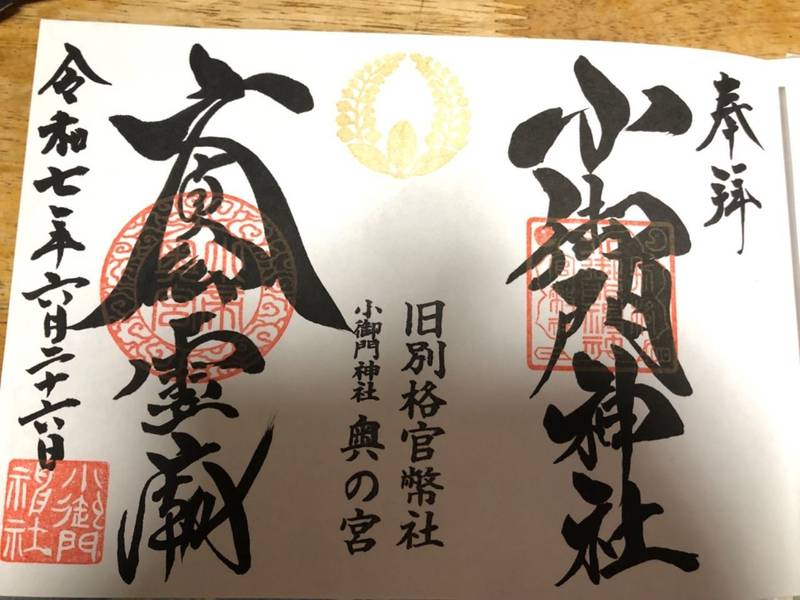 奉拝
小御門神社
旧別格官幣社
小御門神社 奥の宮
文貞公霊
令和七年六月二十六日
小御門神社